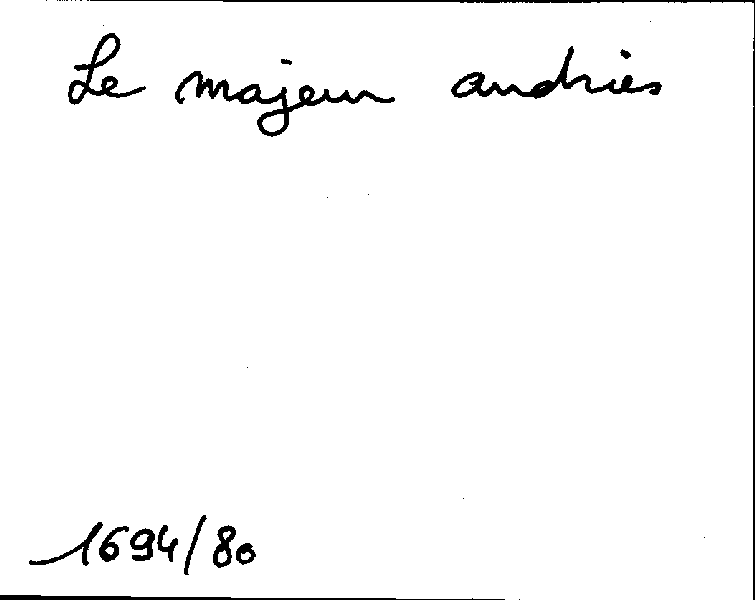 Le majeur andries
1694/80